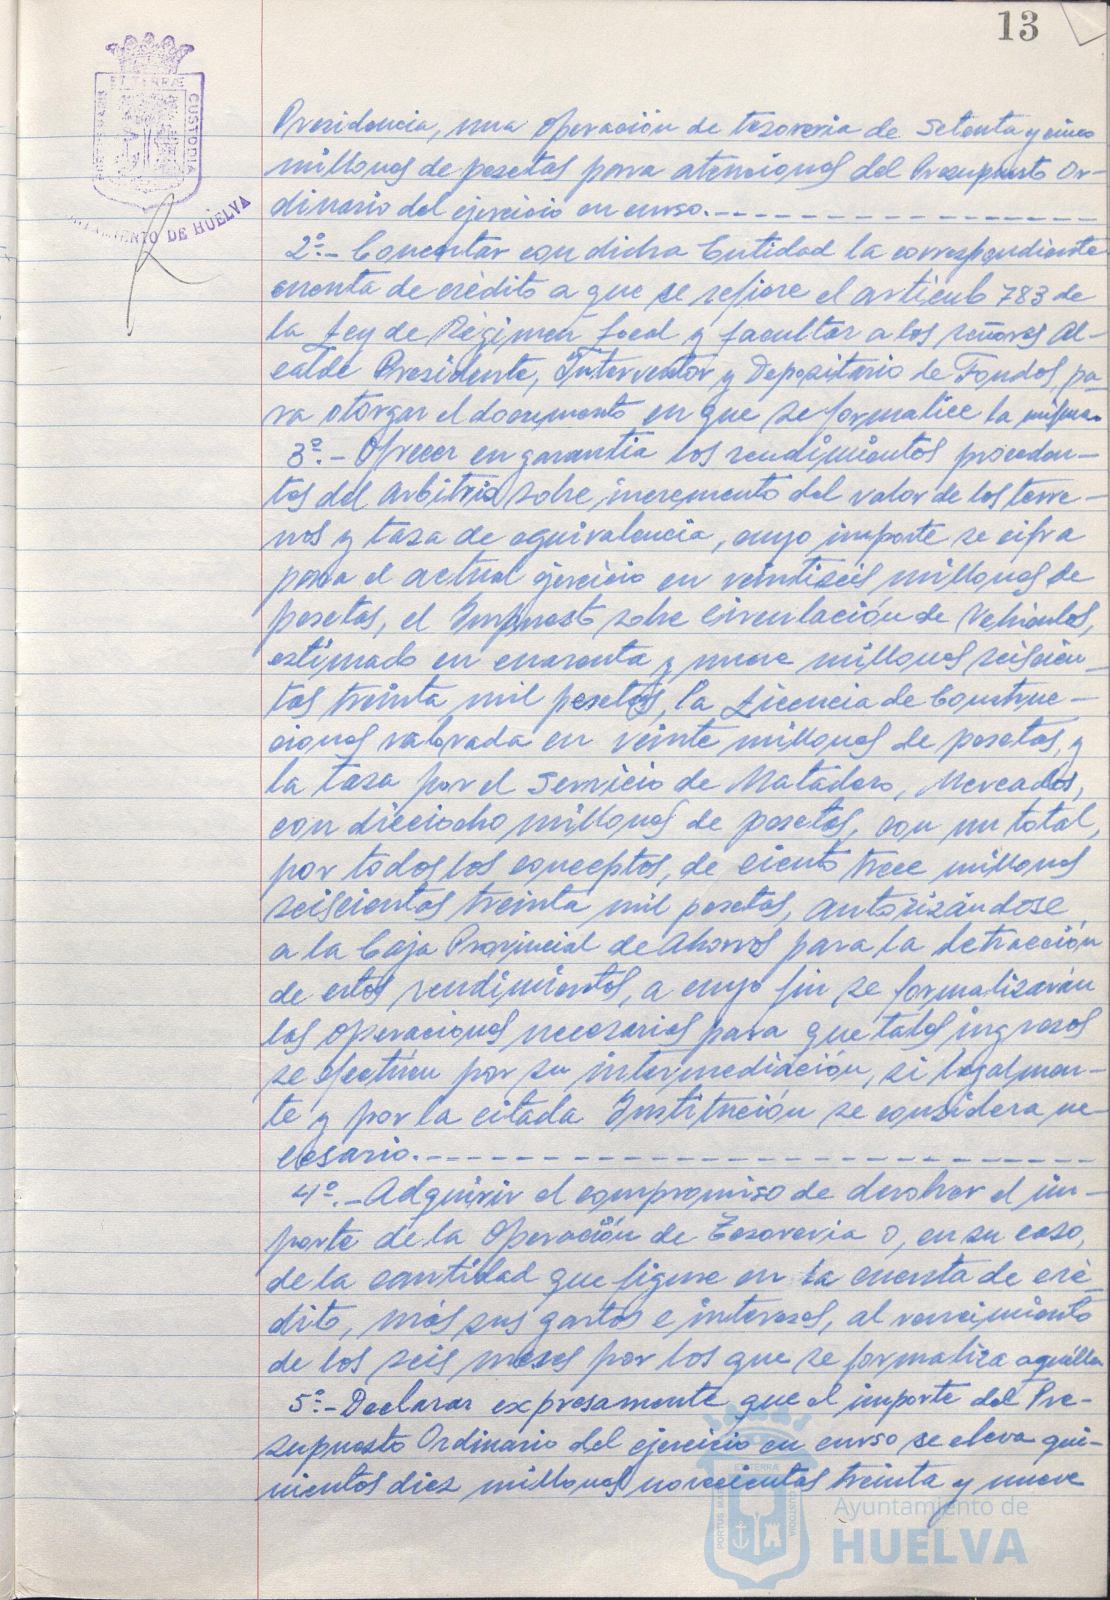 13
ET TERRÆ
CUSTODIA
AYUNTAMIENTO DE HUELVA
Presidencia, una operación de tesoreria de setenta y cinco
millones de pesetas para atenciones del Presupuesto Or-
dinario del ejercicio en curso.-
2º.- Concertar con dicha Entidad la correspondiente
cuenta de crédito a que se refiere el articulo 783 de
la Ley de Régimen Local y facultar a los señores Al-
calde Presidente, Interventor y Depositario de Fondos, pa-
ra otorgar el documento en que se formalice la misma.
3º.- Ofrecer en garantia los rendimientos proceden-
tes del arbitrio sobre incremento del valor de los terre-
nos y tasa de equivalencia, cuyo importe se cifra
para el actual ejercicio en veintiseis millones de
pesetas, el Impuesto sobre circulación de Vehiculos,
estimado en cuarenta y nueve millones seiscien-
tas treinta mil pesetas, la Licencia de Construc-
ciones valorada en veinte millones de pesetas, y
la tasa por el servicio de Matadero, Mercados,
con dieciocho millones de pesetas, con un total,
por todos los conceptos, de ciento trece millones
seiscientas treinta mil pesetas, autorizándose
a la Caja Provincial de Ahorros para la detracción
de estos rendimientos, a cuyo fin se formalizarán
las operaciones necesarias para que tales ingresos
se efectúen por su intermediación, si legalmen-
te y por la citada Institución se considera ne-
cesario.-
4º.- Adquirir el compromiso de devolver el im-
porte de la Operación de Tesoreria o, en su caso,
de la cantidad que figure en la cuenta de cré-
dito, más sus gastos e intereses, al vencimiento
de los seis meses por los que se formaliza aquélla
5º.- Declarar expresamente que el importe del Pre-
supuesto Ordinario del ejercicio en curso se eleva qui-
nientos diez millones novecientas treinta y nueve
ET TERRÆ
PORTUS MARIS
CUSTODIA
Ayuntamiento de
HUELVA